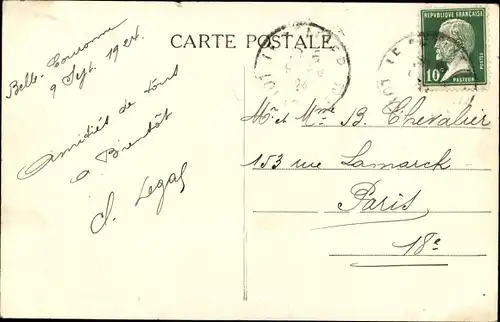 CARTE POSTALE
RÉPUBLIQUE FRANÇAISE
10c
POSTES
PASTEUR
Belle-
9 Sept. 1924
Amitiés de tous
a Bientôt
Ch. Legal
Mr et Mme B. Chevalier
153 rue Lamarck
Paris
18e